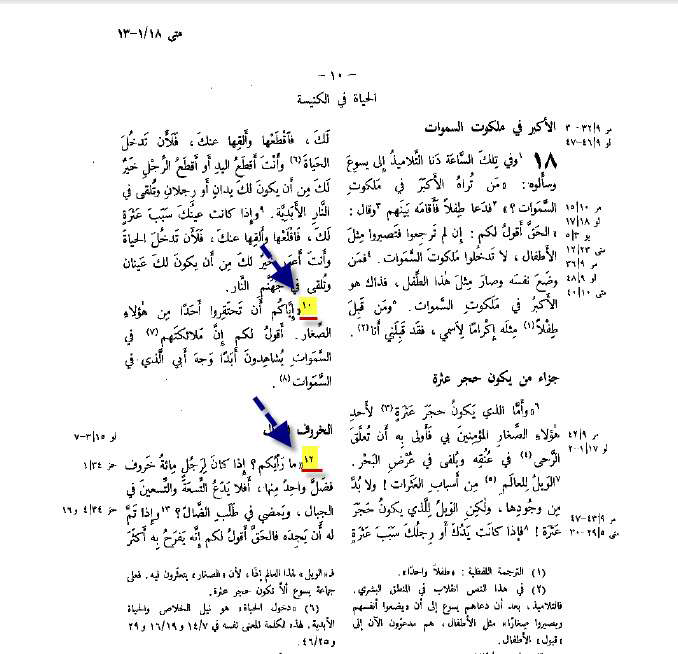 متى ١/١٨-١٣
- ١٠ -
الحياة في الكنيسة
الأكبر في ملكوت السموات
مر ٣٢/٩ - ٣
لو ٤٦/٩-٤٧
١٨ ١وفي تِلكَ السَّاعَة دَنا التَّلاميذُ إِلى يسوعَ
وسأَلوه: «مَن تُراهُ الأَكبَرُ في مَلكوتِ
السَّمَوات؟» ٢فدَعا طِفلاً فأَقامَه بَينَهم ٣وقال:
«الحَقَّ أَقولُ لكم: إِن لم تَرجِعوا فتَصيروا مِثلَ
الأَطفال، لا تَدخُلوا مَلكوتَ السَّمَوات. ٤فمَن
وضَعَ نفسَه وصارَ مِثلَ هٰذا الطِّفل، فذاك هو
الأَكبرُ في مَلكوتِ السَّموات. ٥ومَن قَبِلَ
طِفلاً(١) مِثلَه إِكرامًا لِاسمي، فقَد قَبِلَني أَنا(٢).
مر ١٥/١٠
لو ١٧/١٨
يو ٥/٣
متى ١٢/٢٣
مر ٣٦/٩
لو ٤٨/٩
متى ٤٠/١٠
جزاء من يكون حجر عثرة
٦«وأَمَّا الذي يَكونُ حجَرَ عَثرَةٍ(٣) لأَحدِ
هٰؤلاءِ الصِّغارِ المُؤمِنينَ بي فَأَولى بِه أَن تُعلَّقَ
الرَّحى(٤) في عُنُقِه ويُلقى في عُرْضِ البَحْر.
٧الوَيلُ لِلعالَمِ(٥) مِن أَسبابِ العَثَرات! ولا بُدَّ
مِن وجودِها، ولٰكِنِ الوَيلُ لِلَّذي يَكونُ حجَرَ
عَثرَة! ٨فإِذا كانَت يَدُكَ أَو رِجلُكَ سَبَبَ عَثرَةٍ
مر ٤٢/٩
لو ١/١٧-٢
مر ٤٣/٩-٤٧
متى ٢٩/٥-٣٠
لَكَ، فاقطَعْها وأَلقِها عنكَ، فَلَأَن تَدخُلَ
الحَياةَ(٦) وأَنتَ أَقطَعُ اليَدِ أَو أَقطَعُ الرِّجلِ خَيرٌ
لَكَ مِن أَن يكونَ لكَ يدانِ أَو رِجلانِ وتُلقى في
النَّارِ الأَبَدِيَّة. ٩وإِذا كانت عينُكَ سَبَبَ عَثرَةٍ
لَكَ، فَاقلَعْها وأَلقِها عنكَ، فَلَأَن تَدخُلَ الحَياةَ
وأَنتَ خَيرٌ لكَ مِن أَن يكونَ لكَ عَينان
وتُلقى في جَهَنَّمِ النَّار.
١٠«إِيَّاكُم أَن تَحتَقِروا أَحَدًا مِن هٰؤلاءِ
الصِّغار. أَقولُ لكم إِنَّ ملائكتَهم(٧) في
السَّمَواتِ يُشاهِدونَ أَبَدًا وَجهَ أَبي الَّذي في
السَّمَوات(٨).
الخروف
لو ٣/١٥-٧
١٢«ما رأيُكم؟ إِذا كانَ لِرَجُلٍ مِائةُ خَروف
فضَلَّ واحِدٌ مِنها، أَفلا يَدَعُ التِّسعَةَ والتِّسعينَ في
الجِبال، ويَمضي في طَلَبِ الضَّالّ؟ ١٣وإِذا تَمَّ
له أَن يَجِدَه فالحَقَّ أَقولُ لكم إِنَّه يَفرَحُ بِه أَكثَرَ
حز ١/٣٤
حز ٤/٣٤ و١٦
(١) الترجمة اللفظية: «طفلاً واحدًا».
(٢) في هذا النص انقلاب في المنطق البشري.
فالتلاميذ، بعد أن دعاهم يسوع إلى أن «يضعوا أنفسهم
ويصيروا صغارًا» مثل الأطفال، هم مدعوّون الآن إلى
«قبول» الأطفال.
فـ«الويل» لهذا العالم إذًا، لأن «الصغار» يتعثّرون فيه. فعلى
جماعة يسوع ألاّ تكون حجر عثرة.
(٦) «دخول الحياة» هو نيل للخلاص والحياة
الأبدية. لهذه الكلمة المعنى نفسه في ١٤/٧ و١٦/١٩ و٢٩
و٤٦/٢٥.